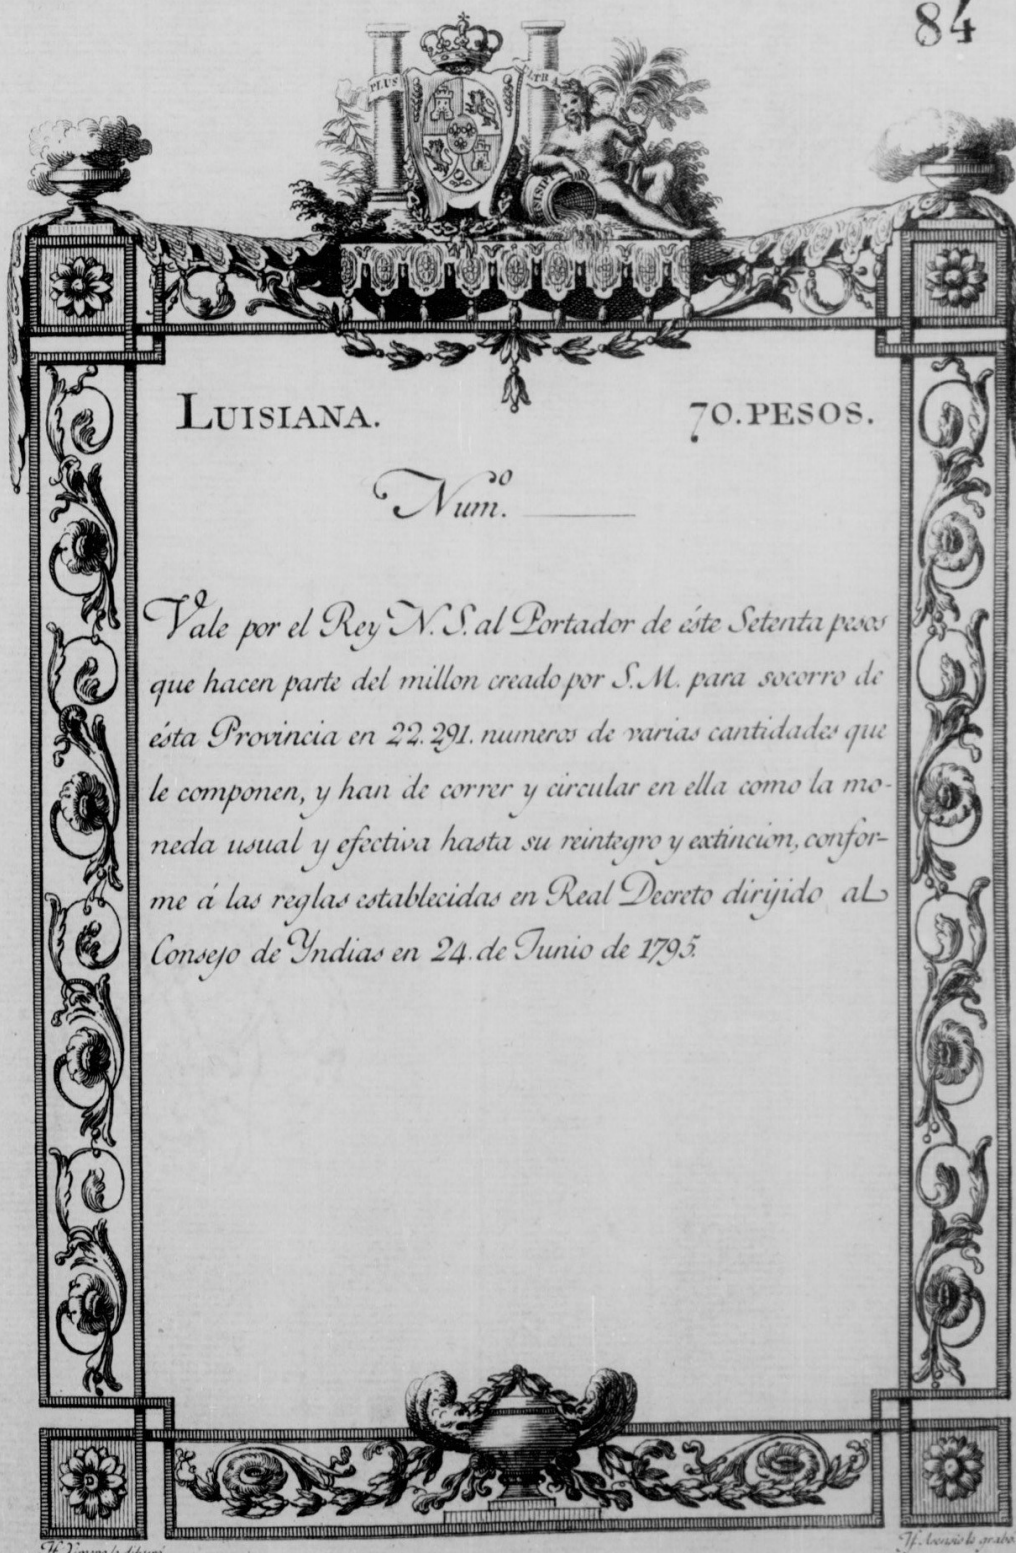 84
PLUS ULTRA
MISISIPI
LUISIANA. 70. PESOS.
Num.º
Vale por el Rey N. S. al Portador de éste Setenta pesos
que hacen parte del millon creado por S. M. para socorro de
ésta Provincia en 22.291. numeros de varias cantidades que
le componen, y han de correr y circular en ella como la mo-
neda usual y efectiva hasta su reintegro y extincion, confor-
me á las reglas establecidas en Real Decreto dirijido al
Consejo de Yndias en 24. de Junio de 1795.
Jf. Asensio lo grabó